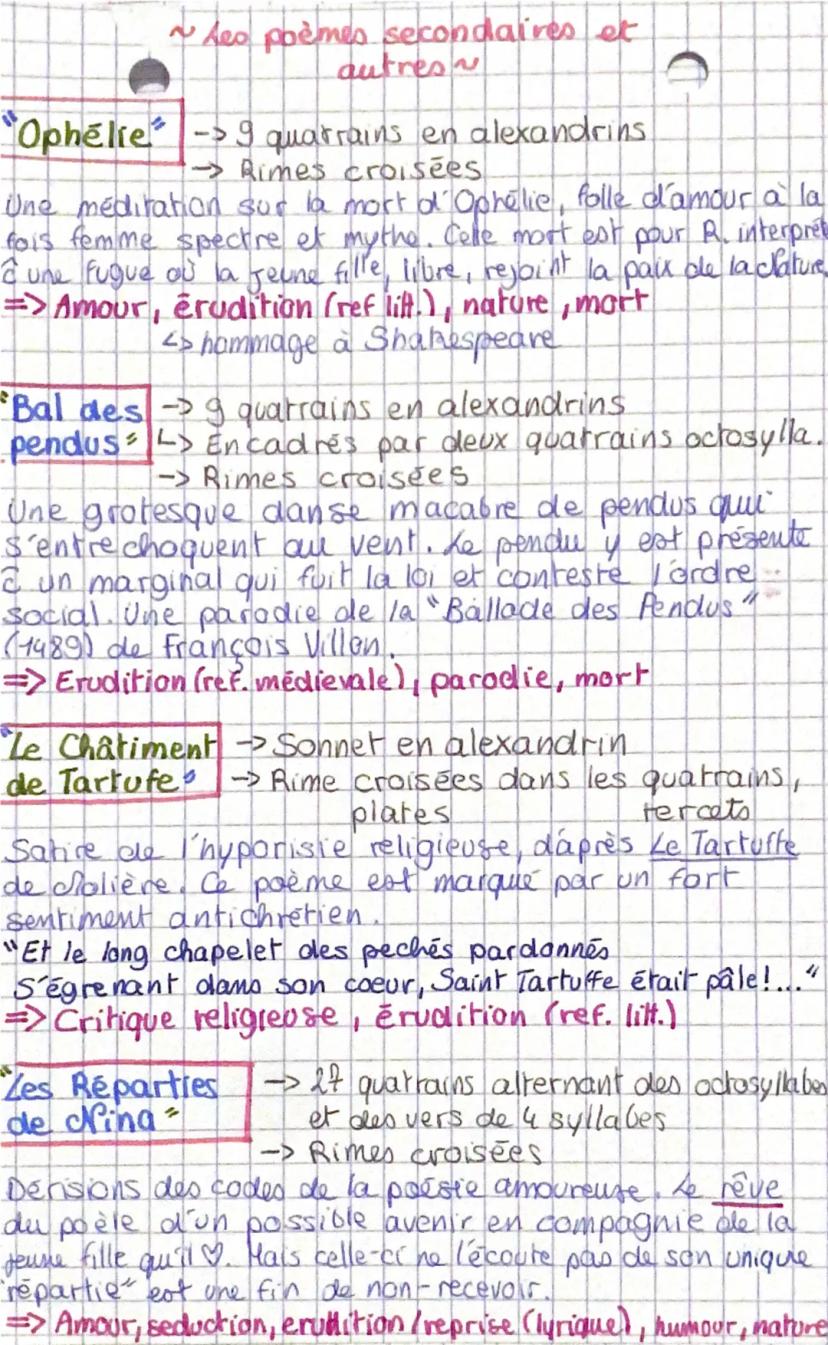 ~ Les poèmes secondaires et
autres ~
"Ophélie" -> 9 quatrains en alexandrins
-> Rimes croisées
Une méditation sur la mort d'Ophélie, folle d'amour à la
fois femme spectre et mythe. Cele mort est pour R. interprét
c̄ une fugue où la jeune fille, libre, rejoint la paix de la Nature.
=> Amour, érudition (ref litt.), nature, mort
↳ hommage à Shakespeare
"Bal des -> 9 quatrains en alexandrins
pendus" ↳ Encadrés par deux quatrains octosylla.
-> Rimes croisées
Une grotesque danse macabre de pendus qui
s'entrechoquent au vent. Le pendu y est présenté
c̄ un marginal qui fuit la loi et conteste l'ordre
social. Une parodie de la "Ballade des Pendus"
(1489) de François Villon.
=> Erudition (ref. médievale), parodie, mort
"Le Châtiment -> Sonnet en alexandrin
de Tartufe" -> Rime croisées dans les quatrains,
plates tercets
Satire de l'hyporisie religieuse, d'après Le Tartuffe
de Molière. Ce poème est marqué par un fort
sentiment antichrétien.
"Et le long chapelet des pechés pardonnés
S'égrenant dans son coeur, Saint Tartuffe était pâle!..."
=> Critique religieuse, érudition (ref. litt.)
"Les Réparties -> 27 quatrains alternant des octosyllabes
de Nina" et des vers de 4 syllabes
-> Rimes croisées
Dérisions des codes de la poésie amoureuse. Le rêve
du poèle d'un possible avenir en compagnie de la
jeune fille qu'il ♡. Mais celle-ci ne l'écoute pas de son unique
"répartie" est une fin de non-recevoir.
=> Amour, seduction, erudition/reprise (lyrique), humour, nature